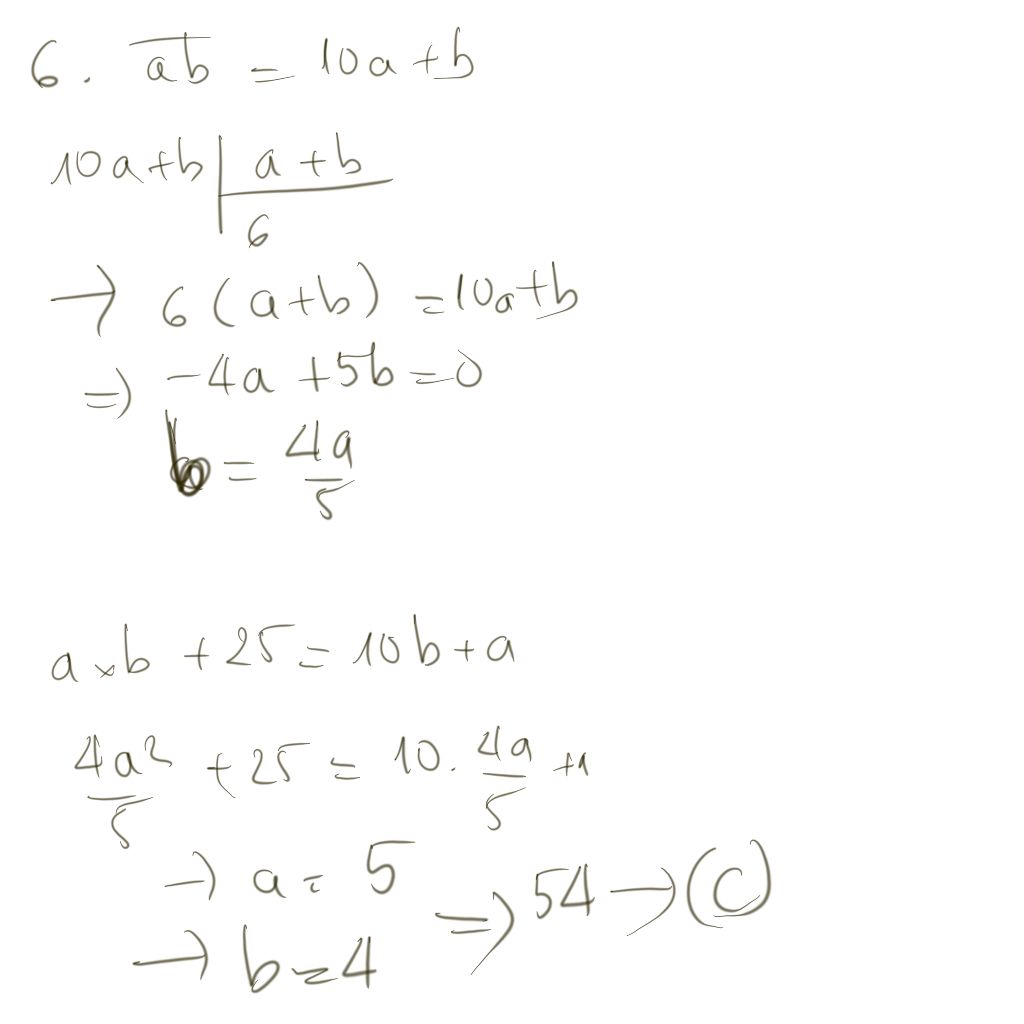 6. a̅b̅ = 10a+b
10a+b | a+b
6
→ 6(a+b) = 10a+b
⇒ -4a +5b=0
b = 4a/5
a×b +25 = 10b+a
4a²/5 +25 = 10. 4a/5 +a
→ a = 5
⇒ 54 → (C)
→ b=4